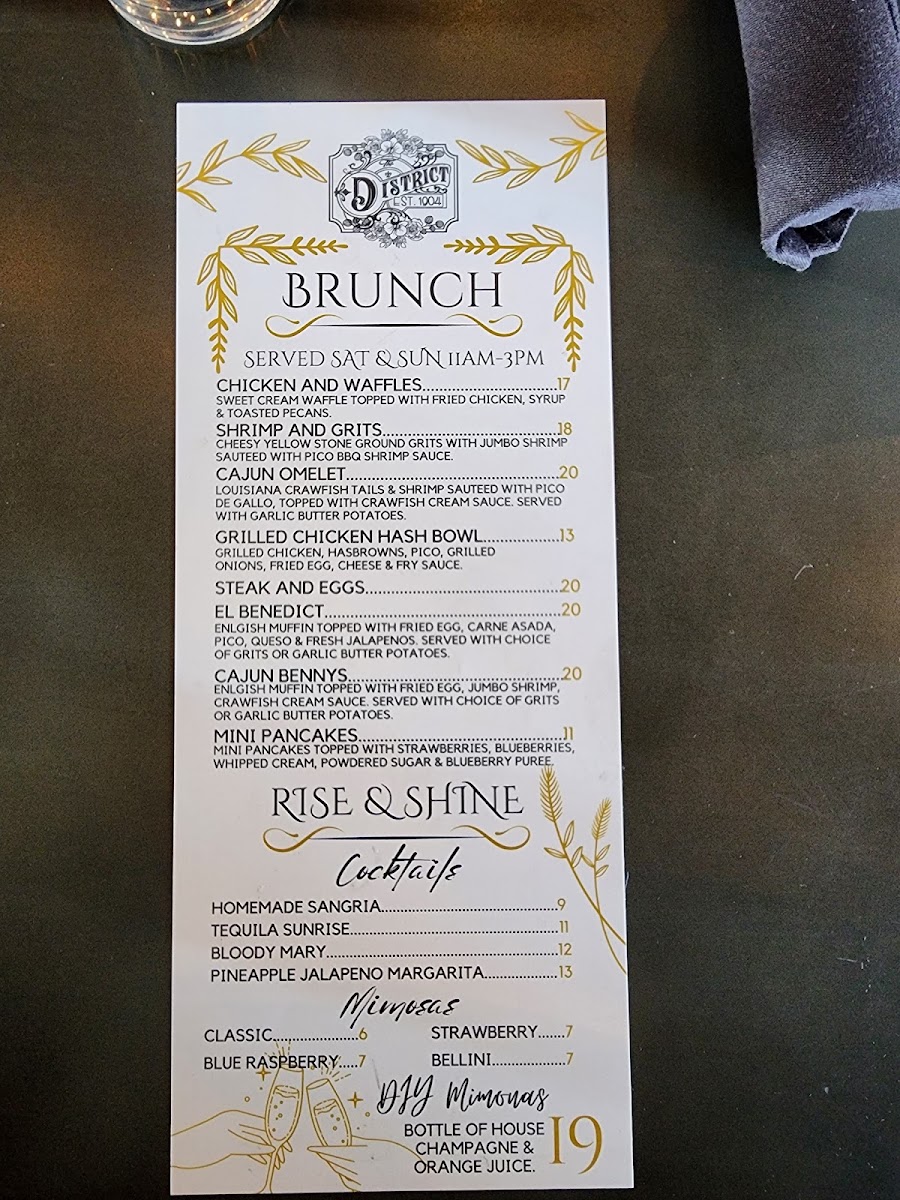 DISTRICT
EST. 1904
BRUNCH
SERVED SAT & SUN 11AM-3PM
CHICKEN AND WAFFLES..............................17
SWEET CREAM WAFFLE TOPPED WITH FRIED CHICKEN, SYRUP
& TOASTED PECANS.
SHRIMP AND GRITS.......................................18
CHEESY YELLOW STONE GROUND GRITS WITH JUMBO SHRIMP
SAUTEED WITH PICO BBQ SHRIMP SAUCE.
CAJUN OMELET...............................................20
LOUISIANA CRAWFISH TAILS & SHRIMP SAUTEED WITH PICO
DE GALLO, TOPPED WITH CRAWFISH CREAM SAUCE. SERVED
WITH GARLIC BUTTER POTATOES.
GRILLED CHICKEN HASH BOWL.................13
GRILLED CHICKEN, HASBROWNS, PICO, GRILLED
ONIONS, FRIED EGG, CHEESE & FRY SAUCE.
STEAK AND EGGS...........................................20
EL BENEDICT....................................................20
ENLGISH MUFFIN TOPPED WITH FRIED EGG, CARNE ASADA,
PICO, QUESO & FRESH JALAPENOS. SERVED WITH CHOICE
OF GRITS OR GARLIC BUTTER POTATOES.
CAJUN BENNYS...............................................20
ENLGISH MUFFIN TOPPED WITH FRIED EGG, JUMBO SHRIMP,
CRAWFISH CREAM SAUCE. SERVED WITH CHOICE OF GRITS
OR GARLIC BUTTER POTATOES.
MINI PANCAKES.............................................11
MINI PANCAKES TOPPED WITH STRAWBERRIES, BLUEBERRIES,
WHIPPED CREAM, POWDERED SUGAR & BLUEBERRY PUREE.
RISE & SHINE
Cocktails
HOMEMADE SANGRIA.......................................9
TEQUILA SUNRISE..............................................11
BLOODY MARY...................................................12
PINEAPPLE JALAPENO MARGARITA................13
Mimosas
CLASSIC....................6 STRAWBERRY.......7
BLUE RASPBERRY.....7 BELLINI..................7
DIY Mimonas
BOTTLE OF HOUSE
CHAMPAGNE & 19
ORANGE JUICE.